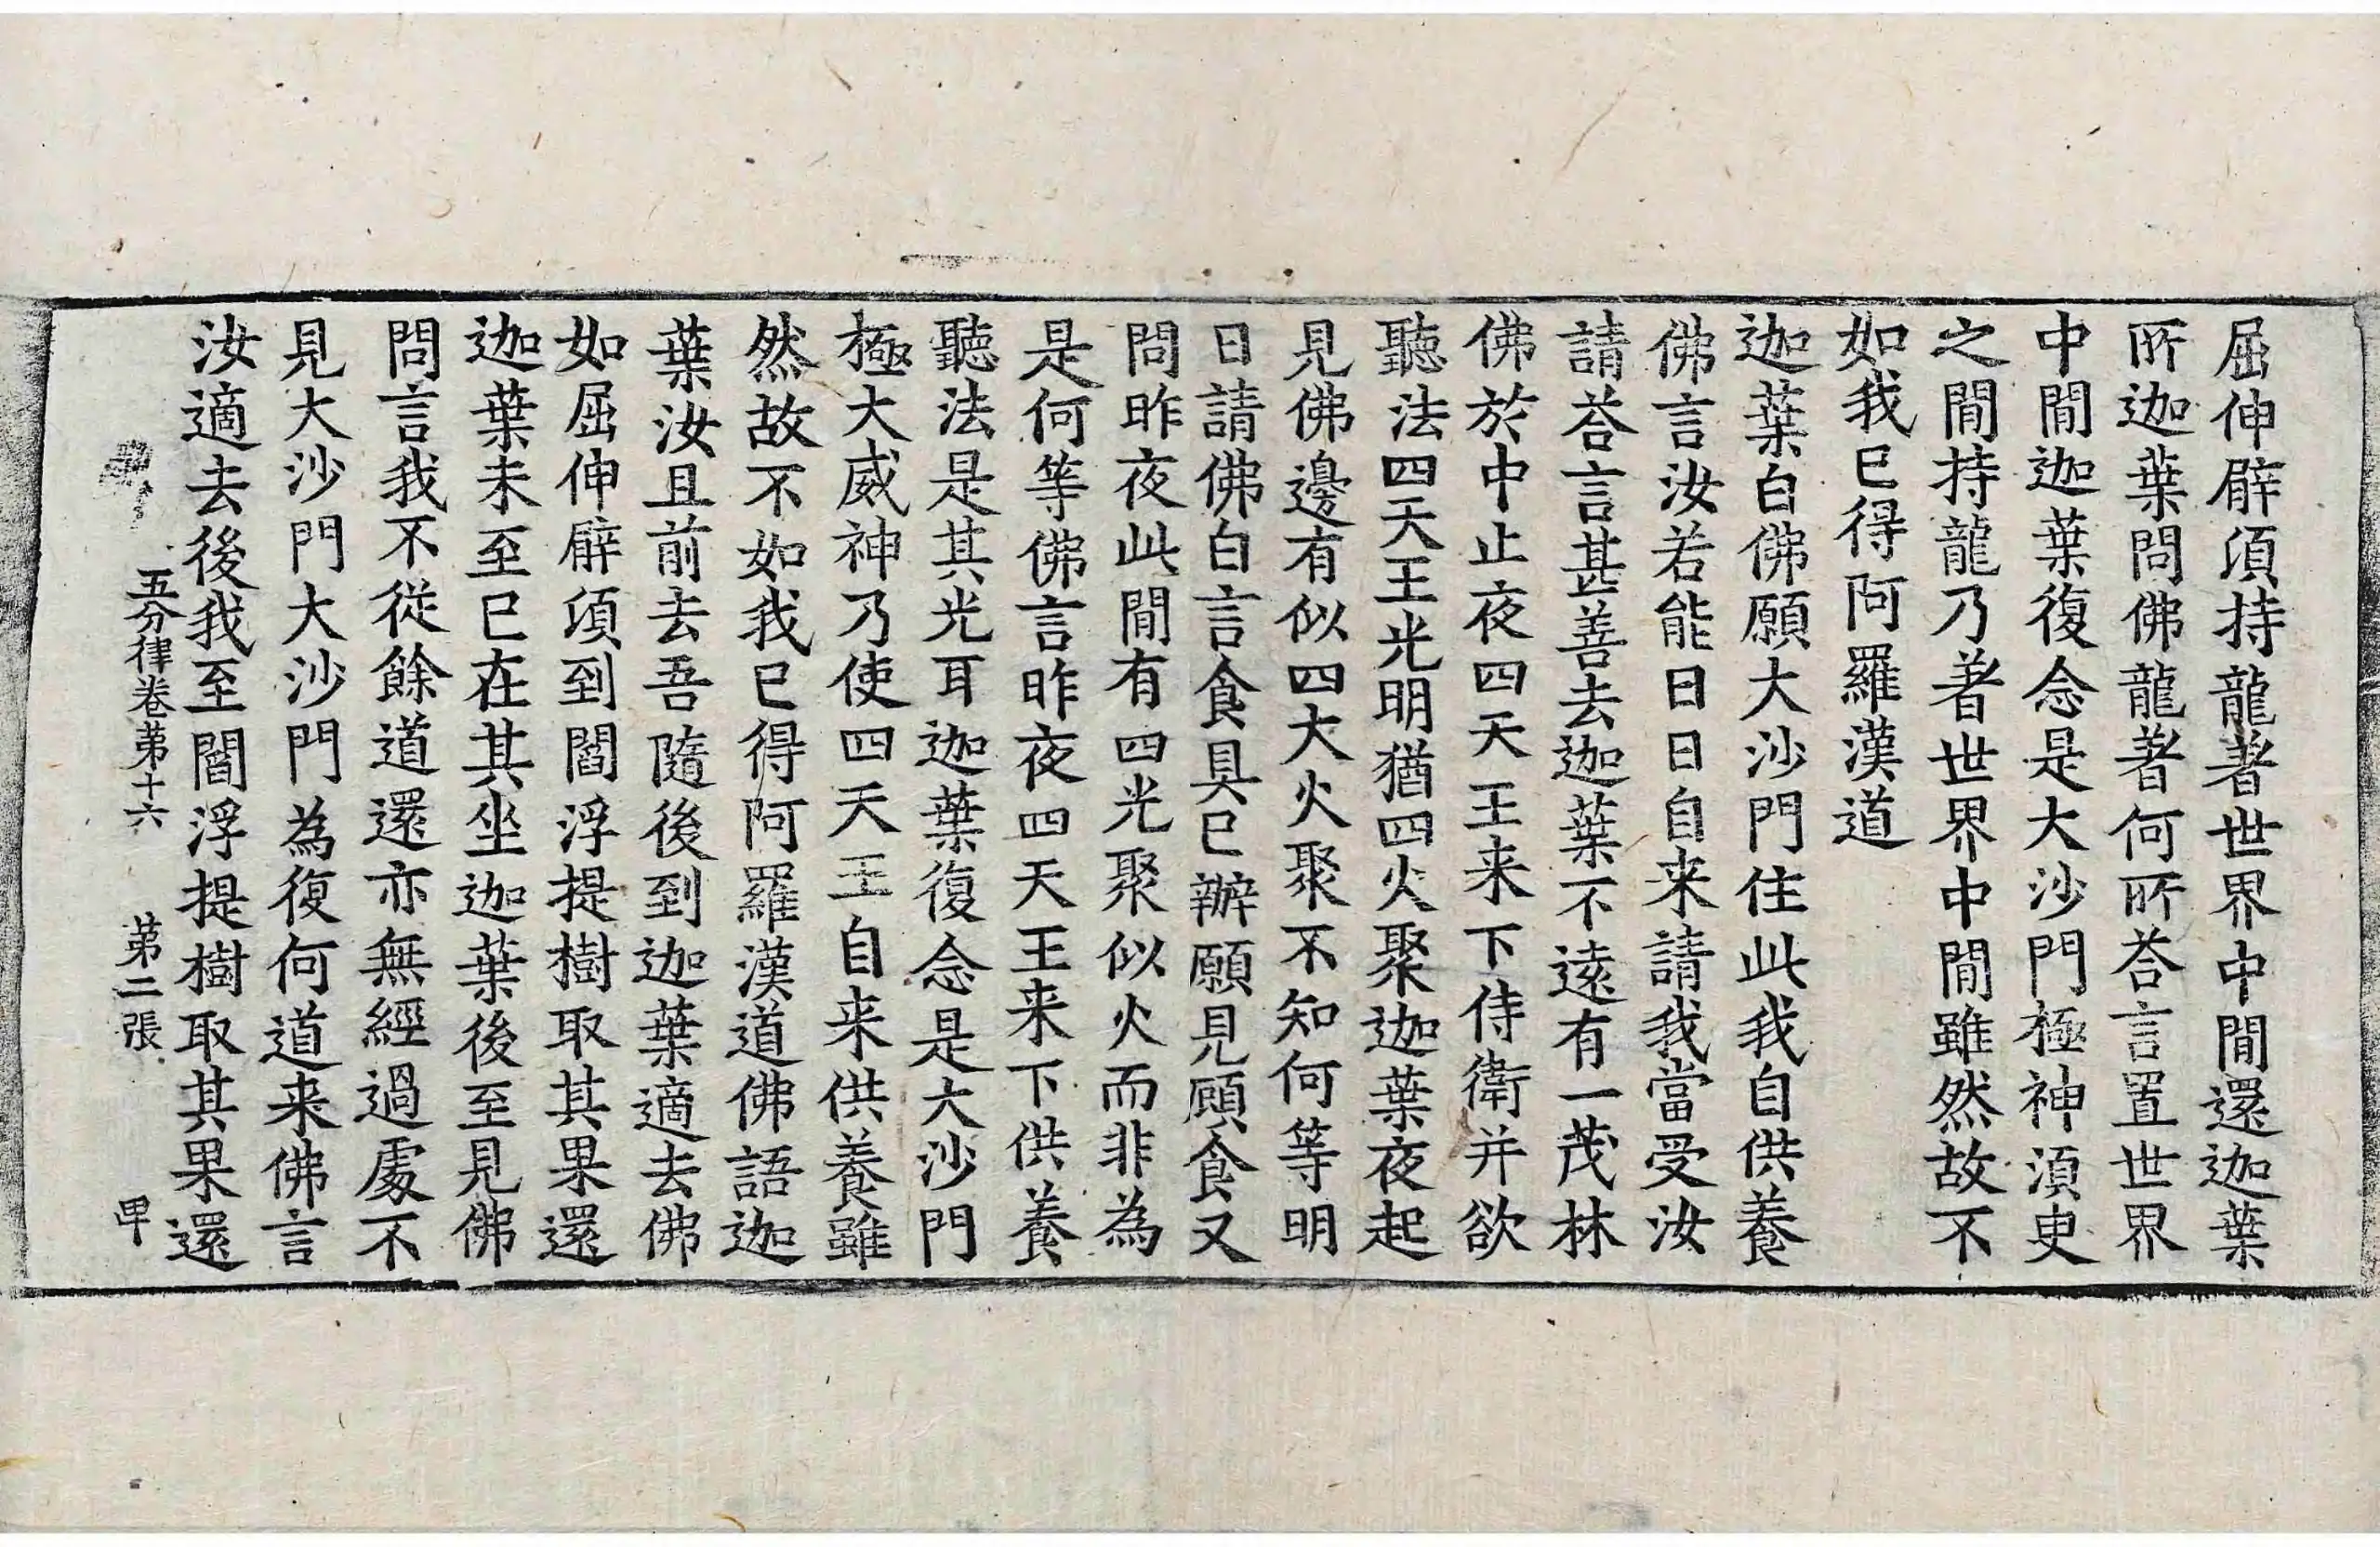 屈伸臂須持龍著世界中間還迦葉
所迦葉問佛龍著何所荅言置世界
中間迦葉復念是大沙門極神須臾
之間持龍乃著世界中間雖然故不
如我已得阿羅漢道
迦葉白佛願大沙門住此我自供養
佛言汝若能日日自来請我當受汝
請荅言甚善去迦葉不遠有一茂林
佛於中止夜四天王来下侍衛并欲
聽法四天王光明猶四火聚迦葉夜起
見佛邊有似四大火聚不知何等明
日請佛白言食具已辦願見顧食又
問昨夜此間有四光聚似火而非為
是何等佛言昨夜四天王来下供養
聽法是其光耳迦葉復念是大沙門
極大威神乃使四天王自来供養雖
然故不如我已得阿羅漢道佛語迦
葉汝且前去吾隨後到迦葉適去佛
如屈伸臂須到閻浮提樹取其果還
迦葉未至已在其坐迦葉後至見佛
問言我不從餘道還亦無經過處不
見大沙門大沙門為復何道来佛言
汝適去後我至閻浮提樹取其果還
五分律卷第十六 第二張 甲